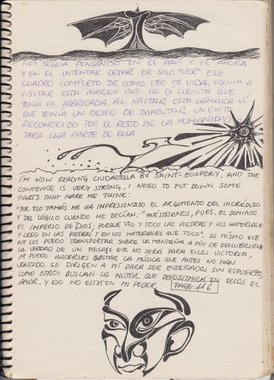 HOY SEGUÍA PENSANDO EN EL AQUÍ Y EL AHORA
Y EN EL INTENTAR DEJAR DE SOLO "VER" ESE
CUADRO COMPLETO DE COMO VEO MI VIDA. VOLVÍA A
VISITAR ESTA IMAGEN QUE ME DI CUENTA QUE
TENÍA YA FABRICADA. AL VISITAR ESTA CAMARA VI
QUE TENÍA UN DESEO DE DISFRUTAR UN ÉXITO
RECONOCIDO POR EL RESTO DE LA HUMANIDAD
PARA UNA PARTE DE ELLA
I'M NOW READING CIUDADELLA BY SAINT-EXUPERY, AND THE
CONTENCE IS VERY STRONG, I NEED TO PUT DOWN SOME
PARTS THAT MAKE ME THINK:
"POR ESO TAMÁS ME HA IMPRESIONADO EL ARGUMENTO DEL INCRÉDULO
Y DEL LÓGICO CUANDO ME DECÍAN: "MUÉSTRANOS, PUES, EL DOMINIO
EL IMPERIO DE DIOS, PORQUE YO Y TOCO LAS PIEDRAS Y LOS MATERIALES
Y CREO EN LAS PIEDRAS Y EN LOS MATERIALES QUE TOCO". LO MISMO QUE
NO LOS PUEDO TRANSPORTAR SOBRE LA MONTAÑA A FIN DE DESCUBRIRLES
LA VERDAD DE UN PAISAJE QUE NO SERÁ PARA ELLOS VICTORIA,
NI PUEDO HACERLES GUSTAR LA MÚSICA QUE ANTES NO HAN
VENCIDO. SE DIRIGEN A MÍ PARA SER ENSEÑADOS SIN ESFUERZO
COMO OTROS BUSCAN LA MUJER QUE DEPOSITARÁ EN ELLOS EL
AMOR. Y ESO NO ESTÁ EN MI PODER PAGE 116